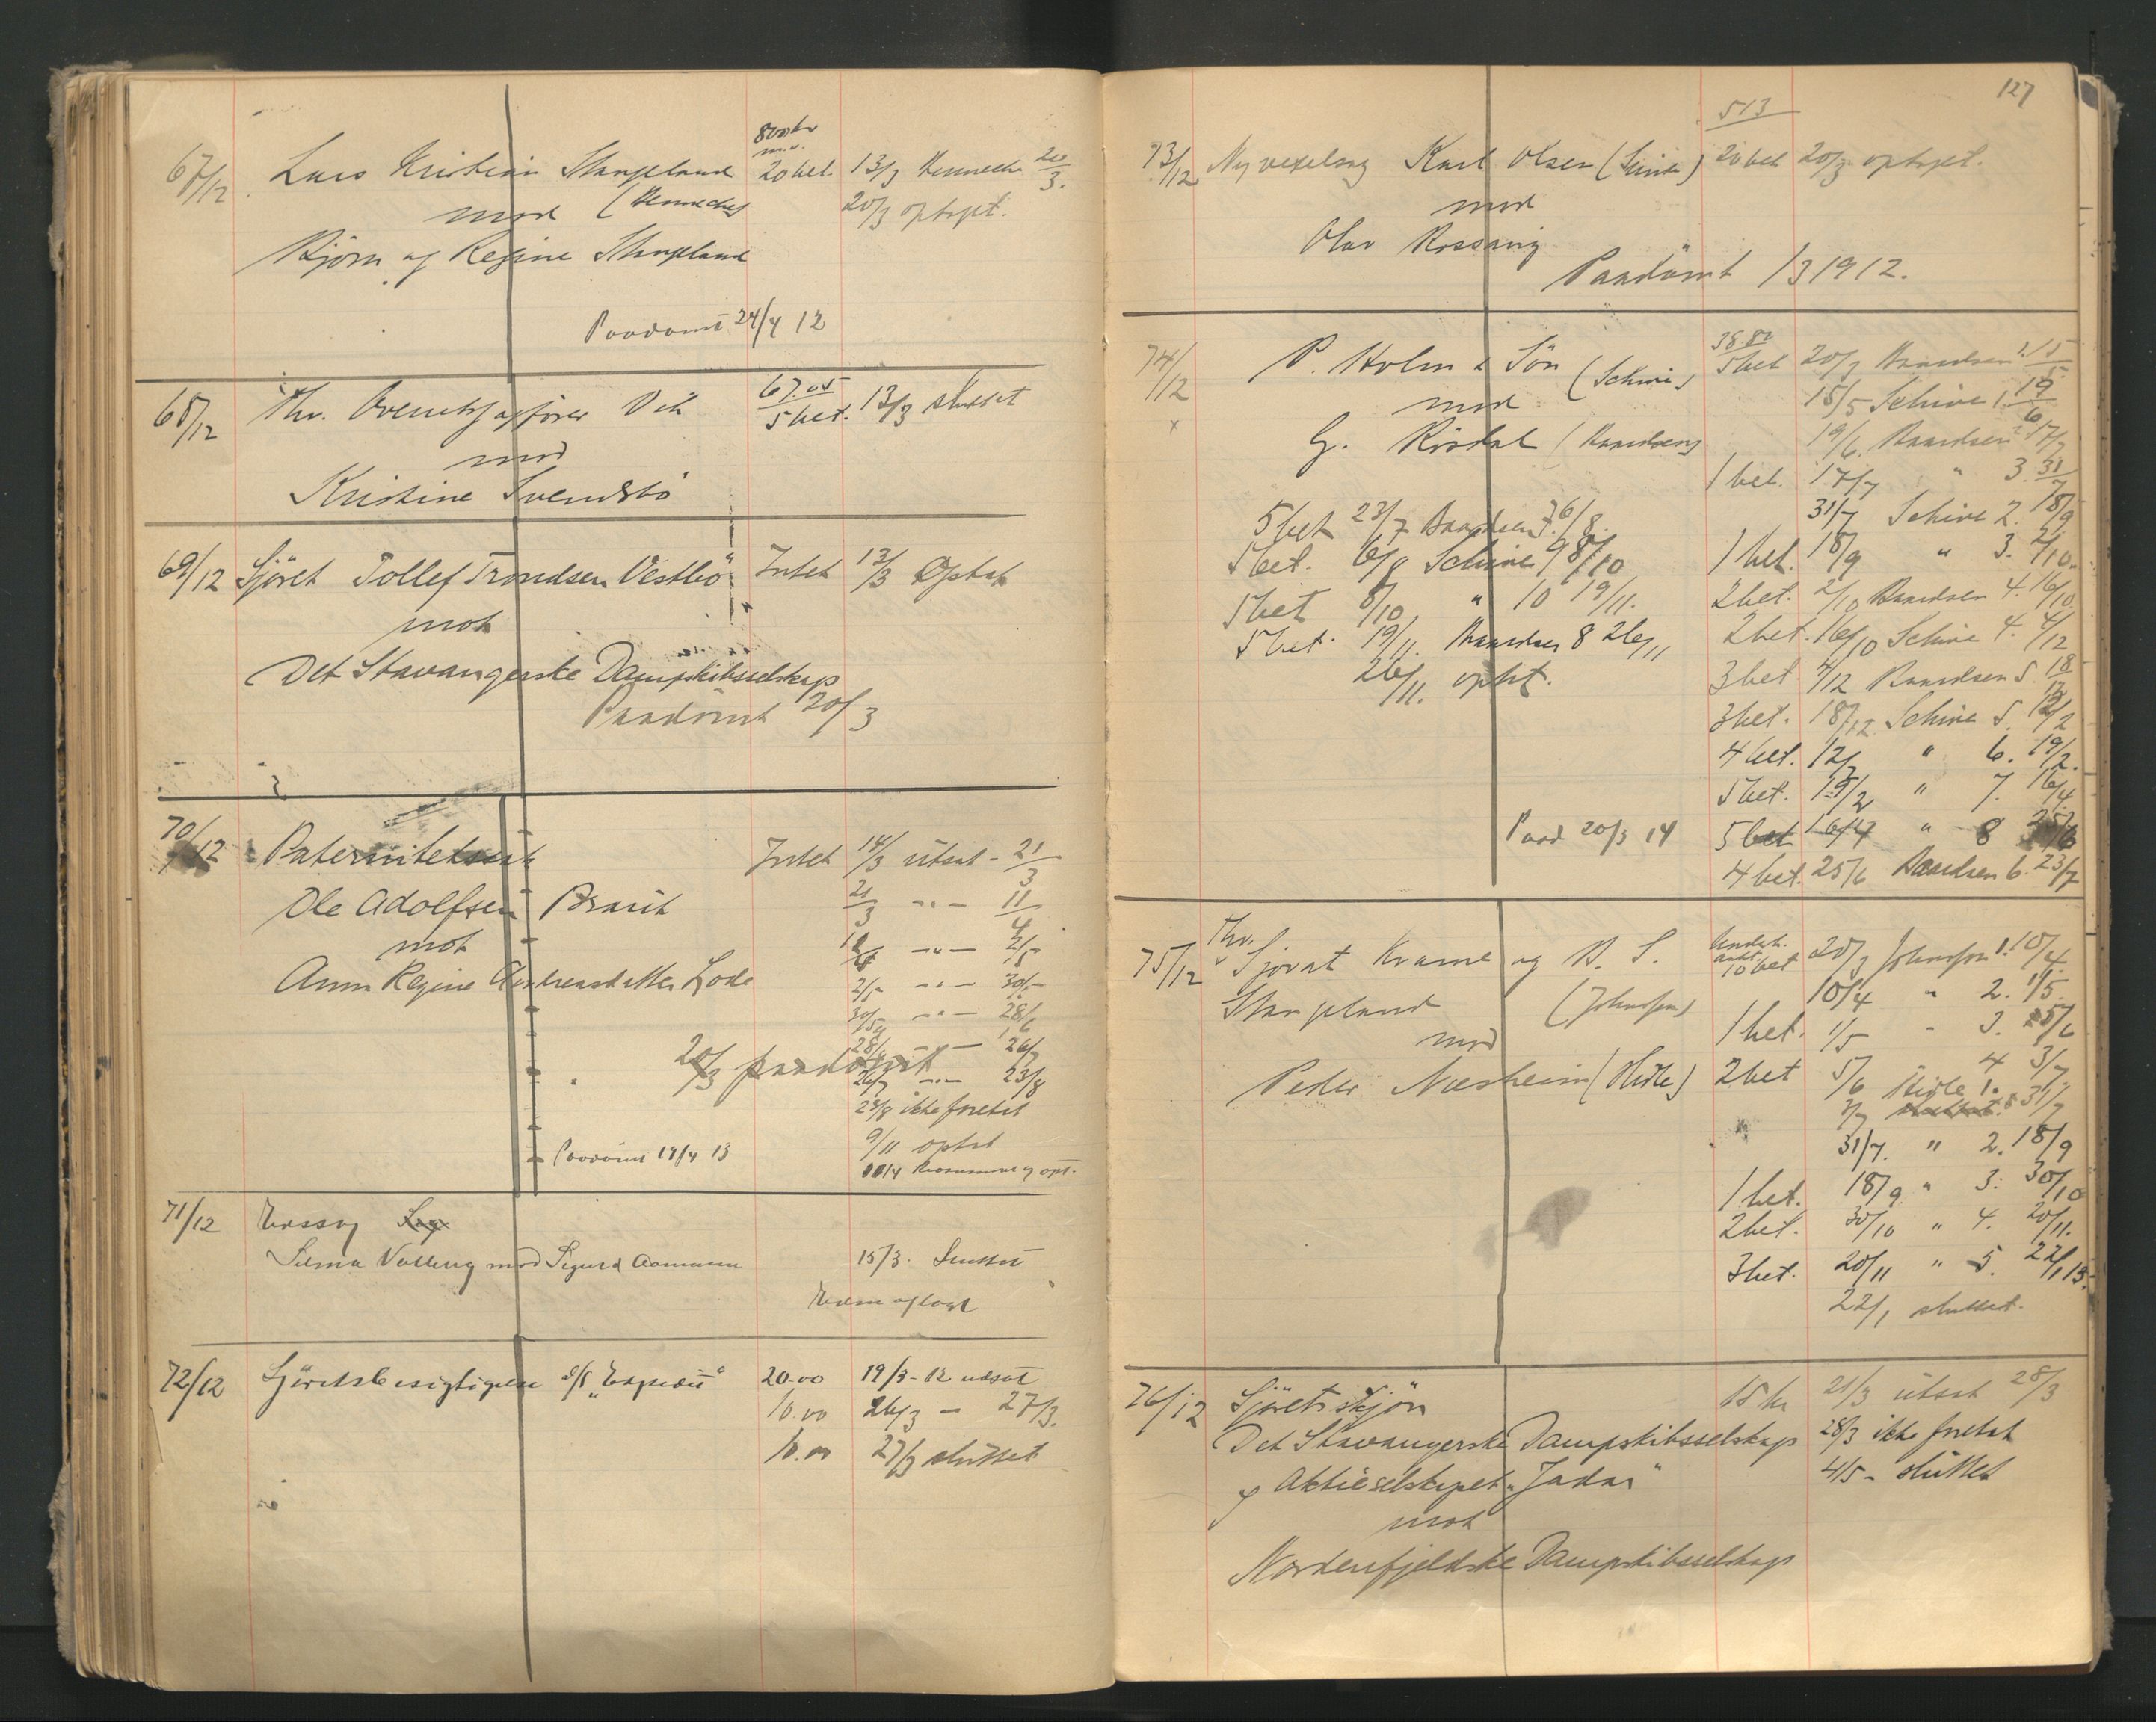 67/12
Lars Kristian Stangeland
800 kr
m.v.
20 bet. 13/3 20/3.
mod
20/3 optaget.
Bjørn og Regine Stangeland
Paadømt 24/4 12
68/12
Thv.
67.05
5 bet. 13/3 sluttet
mod
Kristine Svendsbö
69/12 Sjöret Tollef Trondsen Vestbö Intet 13/3 Optat
mot
Det Stavangerske Dampskibsselskap
Paadömt 20/3
70/12 Paternitetssak Intet 14/3 utsat - 21/3
Ole Adolfsen 21/3 -"- 11/4
mot -"- 2/5
Anna Regine Lode 2/5 -"- 30/5
30/5 -"- 28/6
28/6 -"- 26/7
20/3 paadömt
26/7 -"- 23/8
23/8 ikke foretat
9/11 optat
Paadömt 19/4 13
71/12
mod Sigurd Aamann 15/3. Sluttet
72/12 Sjöretsbesigtigelse S/S 20.00 19/3-12 udsat
10.00 26/3 — 27/3.
10.00 27/3 sluttet
127
513
73/12 Ny vexelsag Karl Olsen 20 bet 20/3 optaget.
mod
Olav Rossavig
Paadömt 1/3 1912.
74/12
P. Holm & Sön (Schive)
38.82
5 bet 20/3 Baardsen 1. 15/5
mod
15/5 Schive 1. 19/6
x
G. Risdal (Baardsen)
19/6. Baardsen 2 17/7
1 bet. 17/7 " 3. 31/7
31/7 Schive 2. 18/9
5 bet 23/7 Baardsen 7. 6/8.
5 bet. 6/8 Schive 9 8/10
1 bet. 18/9 " 3. 2/10.
5 bet 8/10 " 10 19/11.
2 bet. 2/10 Baardsen 4. 16/10
5 bet. 19/11. Baardsen 8 26/11
2 bet. 16/10 Schive 4. 4/12
26/11. optat.
3 bet 4/12 Baardsen 5. 18/12
3 bet. 18/12 Schive 5. 12/2
4 bet. 12/2 " 6. 19/2.
5 bet. 19/2 " 7. 16/4.
Paad 20/3 14 5 bet 16/4 " 8 25/6
4 bet. 25/6 Baardsen 6. 23/7
75/12
Thv. Sjovat Kvame og B. S.
10 bet 20/3 Johnsen 1. 10/4.
Stangeland (Johnsen)
10/4 " 2. 1/5.
mod
1 bet. 1/5 " 3. 5/6
Peder Næsheim (Hidle) 2 bet 5/6 4 3/7
3/7 Hidle 1. 31/7
31/7. " 2. 18/9
1 bet. 18/9 " 3. 30/10
2 bet. 30/10 " 4. 20/11.
3 bet. 20/11 " 5. 22/1 13.
22/1 sluttet.
76/12 Sjöretsskjön 15 kr 21/3 utsat 28/3
Det Stavangerske Dampskibsselskap 28/3 ikke foretat
og Aktieselskapet "Jadar" 4/5 - sluttet
mot
Nordenfjeldske Dampskibsselskap